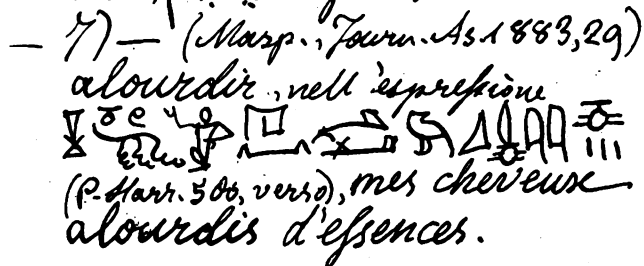 — 7) — (Masp., Journ. As. 1883, 29)
alourdir, nell'espressione
(P. Harr. 500, verso), mes cheveux
alourdis d'essences.